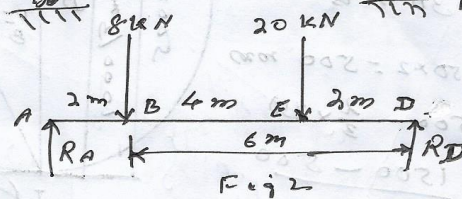 8 KN 20 KN
A 2m B 4m E 2m D
RA 6m RD
Fig 2